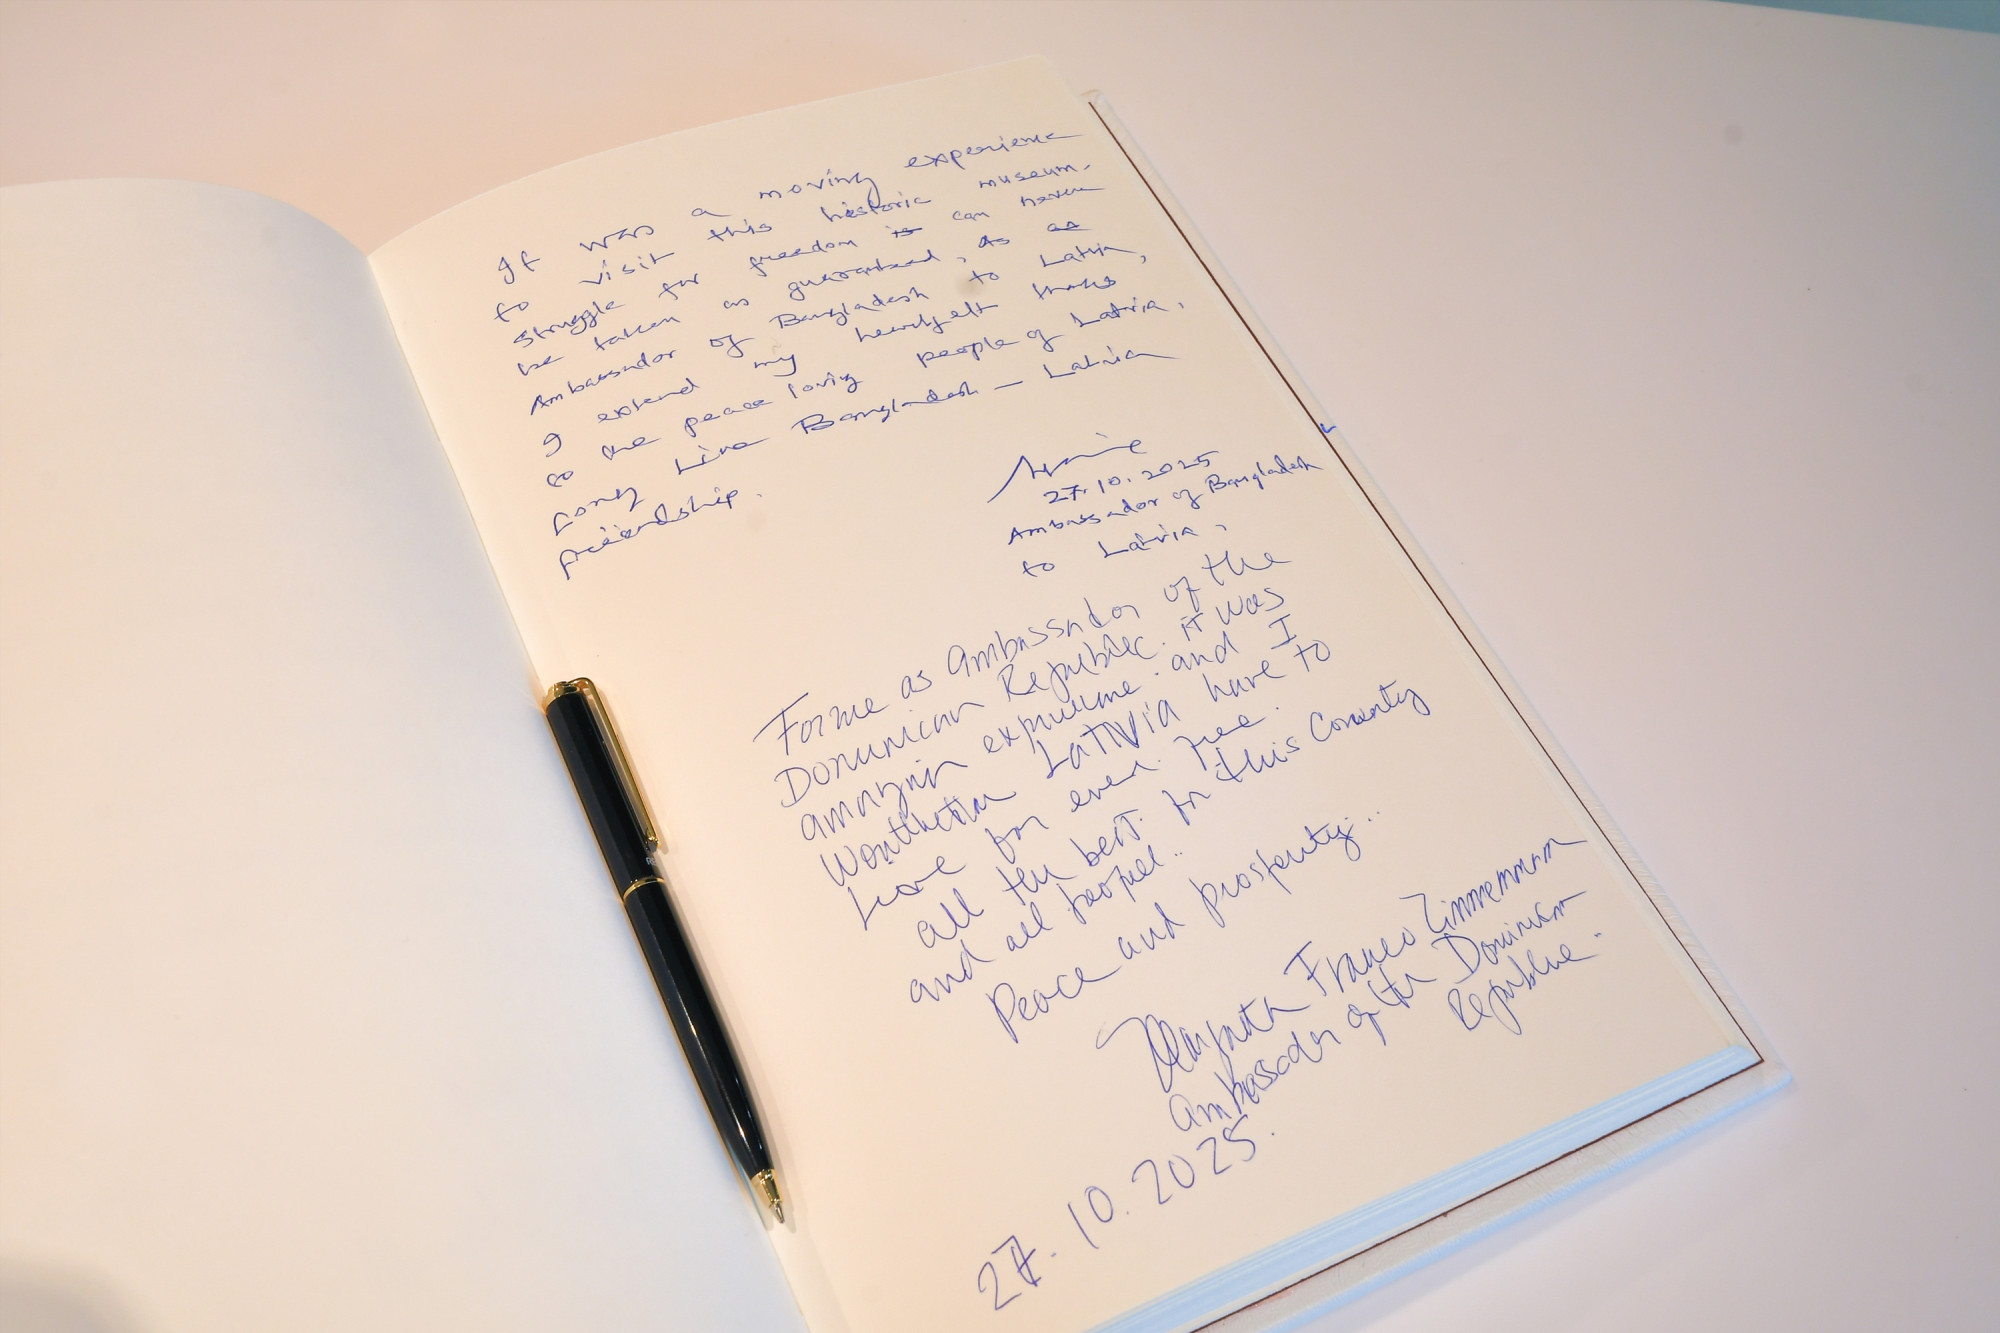 It was a moving experience
to visit this historic museum.
Struggle for freedom is can never
be taken as guaranteed, As as
Ambassador of Bangladesh to Latvia,
I extend my heartfelt thanks
to the peace loving people of Latvia.
Long Live Bangladesh — Latvia
friendship.
27.10.2025
Ambassador of Bangladesh
to Latvia.
For me as Ambassador of the
Dominican Republic. it was
experience. and I
LATIVIA have to
for ever free.
all the best. for this Country
and all people..
Peace and prosperity...
Franco Zimmermann
Ambassador of the Dominican
Republic.
27.10.2025.